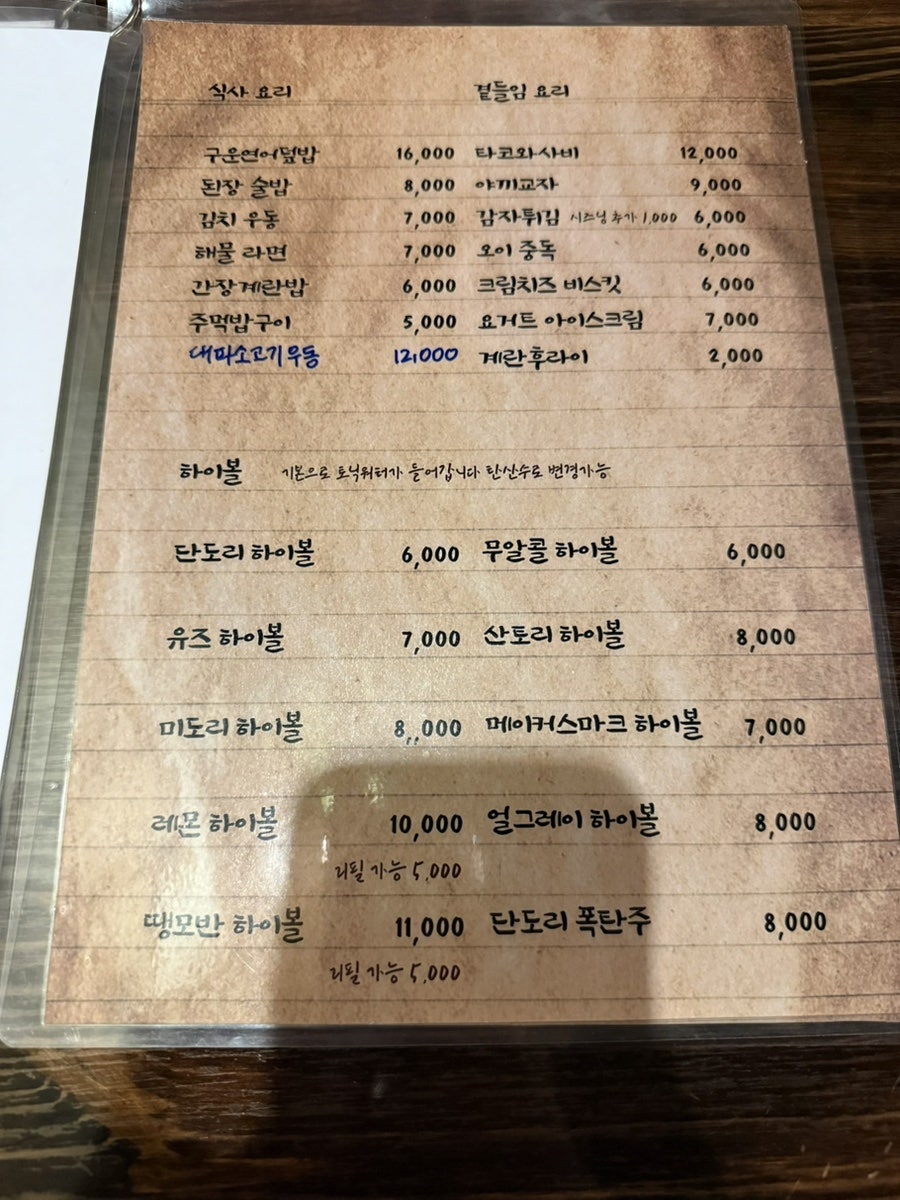 식사 요리 곁들임 요리
구운연어덮밥 16,000 타코와사비 12,000
된장 술밥 8,000 야끼교자 9,000
김치 우동 7,000 감자튀김 시즈닝 추가 1,000 6,000
해물 라면 7,000 오이 중독 6,000
간장계란밥 6,000 크림치즈 비스킷 6,000
주먹밥구이 5,000 요거트 아이스크림 7,000
대파소고기우동 12,000 계란후라이 2,000
하이볼 기본으로 토닉워터가 들어갑니다 탄산수로 변경가능
단도리 하이볼 6,000 무알콜 하이볼 6,000
유즈 하이볼 7,000 산토리 하이볼 8,000
미도리 하이볼 8,000 메이커스마크 하이볼 7,000
레몬 하이볼 10,000 얼그레이 하이볼 8,000
리필 가능 5,000
땡모반 하이볼 11,000 단도리 폭탄주 8,000
리필 가능 5,000